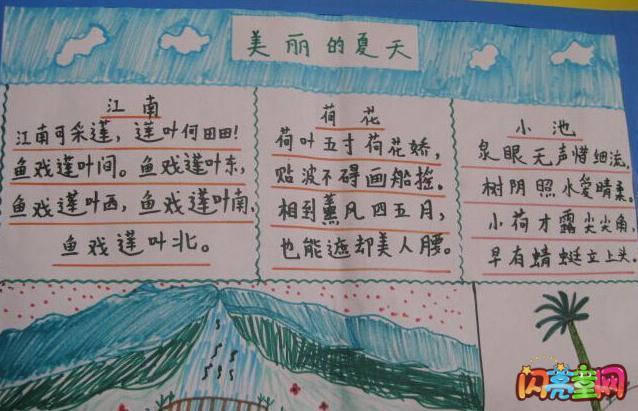 美丽的夏天
江南
江南可采莲，莲叶何田田！
鱼戏莲叶间。鱼戏莲叶东，
鱼戏莲叶西，鱼戏莲叶南，
鱼戏莲叶北。
荷花
荷叶五寸荷花娇，
贴波不碍画船摇。
相到薰风四五月，
也能遮却美人腰。
小池
泉眼无声惜细流，
树阴照水爱晴柔。
小荷才露尖尖角，
早有蜻蜓立上头。
闪亮童网